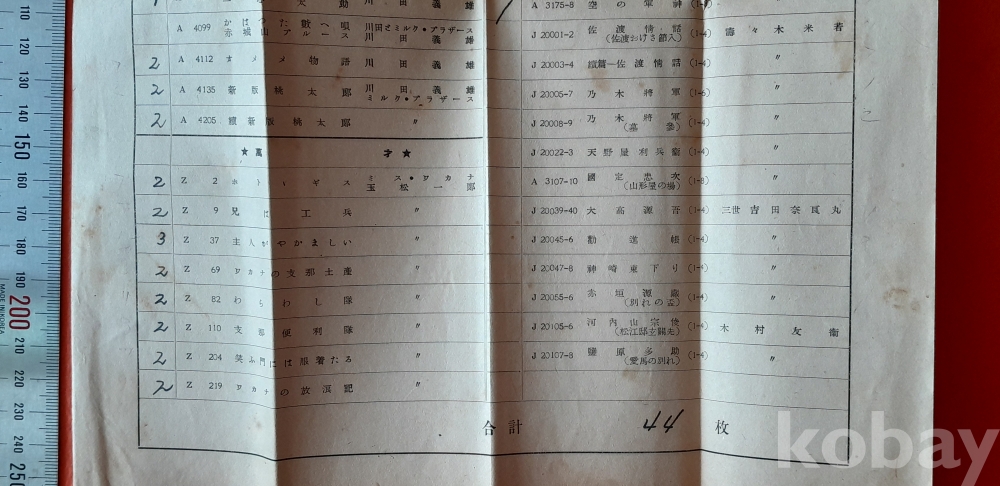 助 川田義雄
A 4099 かはつた歌へ唄 川田とミルク・ブラザース
赤城山ブルース 川田義雄
2 A 4112 オメメ物語 川田義雄
2 A 4135 新版桃太郎 川田義雄
ミルク・ブラザース
2 A 4205 續新版桃太郎 〃
★萬才★
2 Z 2 ホトトギス ミス・ワカナ
玉松一郎
2 Z 9 兄は工兵 〃
3 Z 37 主人がやかましい 〃
2 Z 69 ワカナの支那土産 〃
2 Z 82 わらわし隊 〃
2 Z 110 支那便利隊 〃
2 Z 204 笑ふ門には服着たる 〃
2 Z 219 ワカナの放浪記 〃
A 3175-8 空の軍神
J 20001-2 佐渡情話 (1-4) 壽々木米若
(佐渡おけさ節入)
J 20003-4 續篇―佐渡情話 (1-4) 〃
J 20005-7 乃木將軍 (1-6) 〃
J 20008-9 乃木將軍 (1-4) 〃
(墓參)
J 20022-3 天野屋利兵衞 (1-4) 〃
A 3107-10 國定忠次 (1-8) 〃
(山形屋の場)
J 20039-40 大高源吾 (1-4) 三世吉田奈良丸
J 20045-6 勸進帳 (1-4) 〃
J 20047-8 神崎東下り (1-4) 〃
J 20055-6 赤垣源藏 (1-4) 〃
(別れの盃)
J 20105-6 河内山宗俊 (1-4) 木村友衞
(松江邸玄關先)
J 20107-8 鹽原多助 (1-4) 〃
(愛馬の別れ)
合計 44 枚
kobay
MADE IN KOREA
110
120
150
160
170
180
190
200
210
220
230
240
250